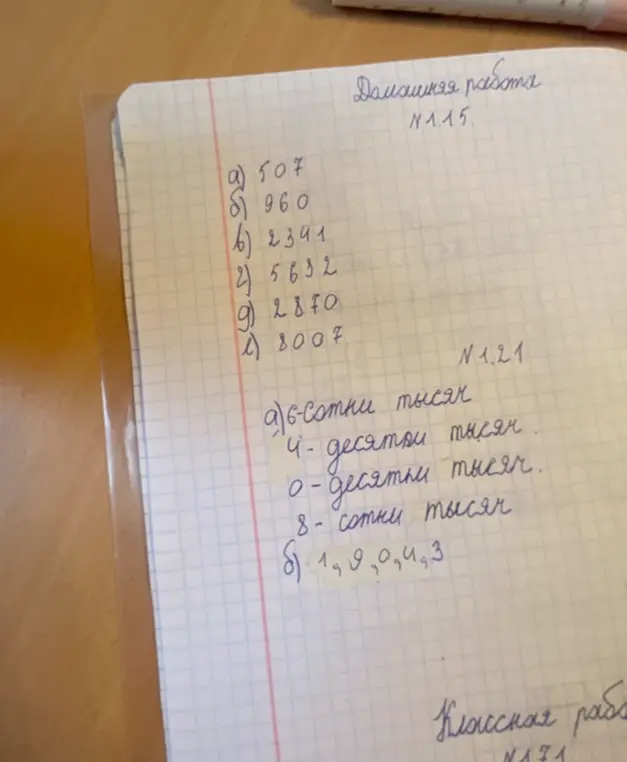 Домашняя работа
№1.15.
а) 507
б) 960
в) 2341
г) 5632
д) 2870
е) 8007
№1.21
а) 6-сотни тысяч
4- десятки тысяч.
0-десятки тысяч.
8- сотни тысяч
б) 1,9,0,4,3
Классная
№171